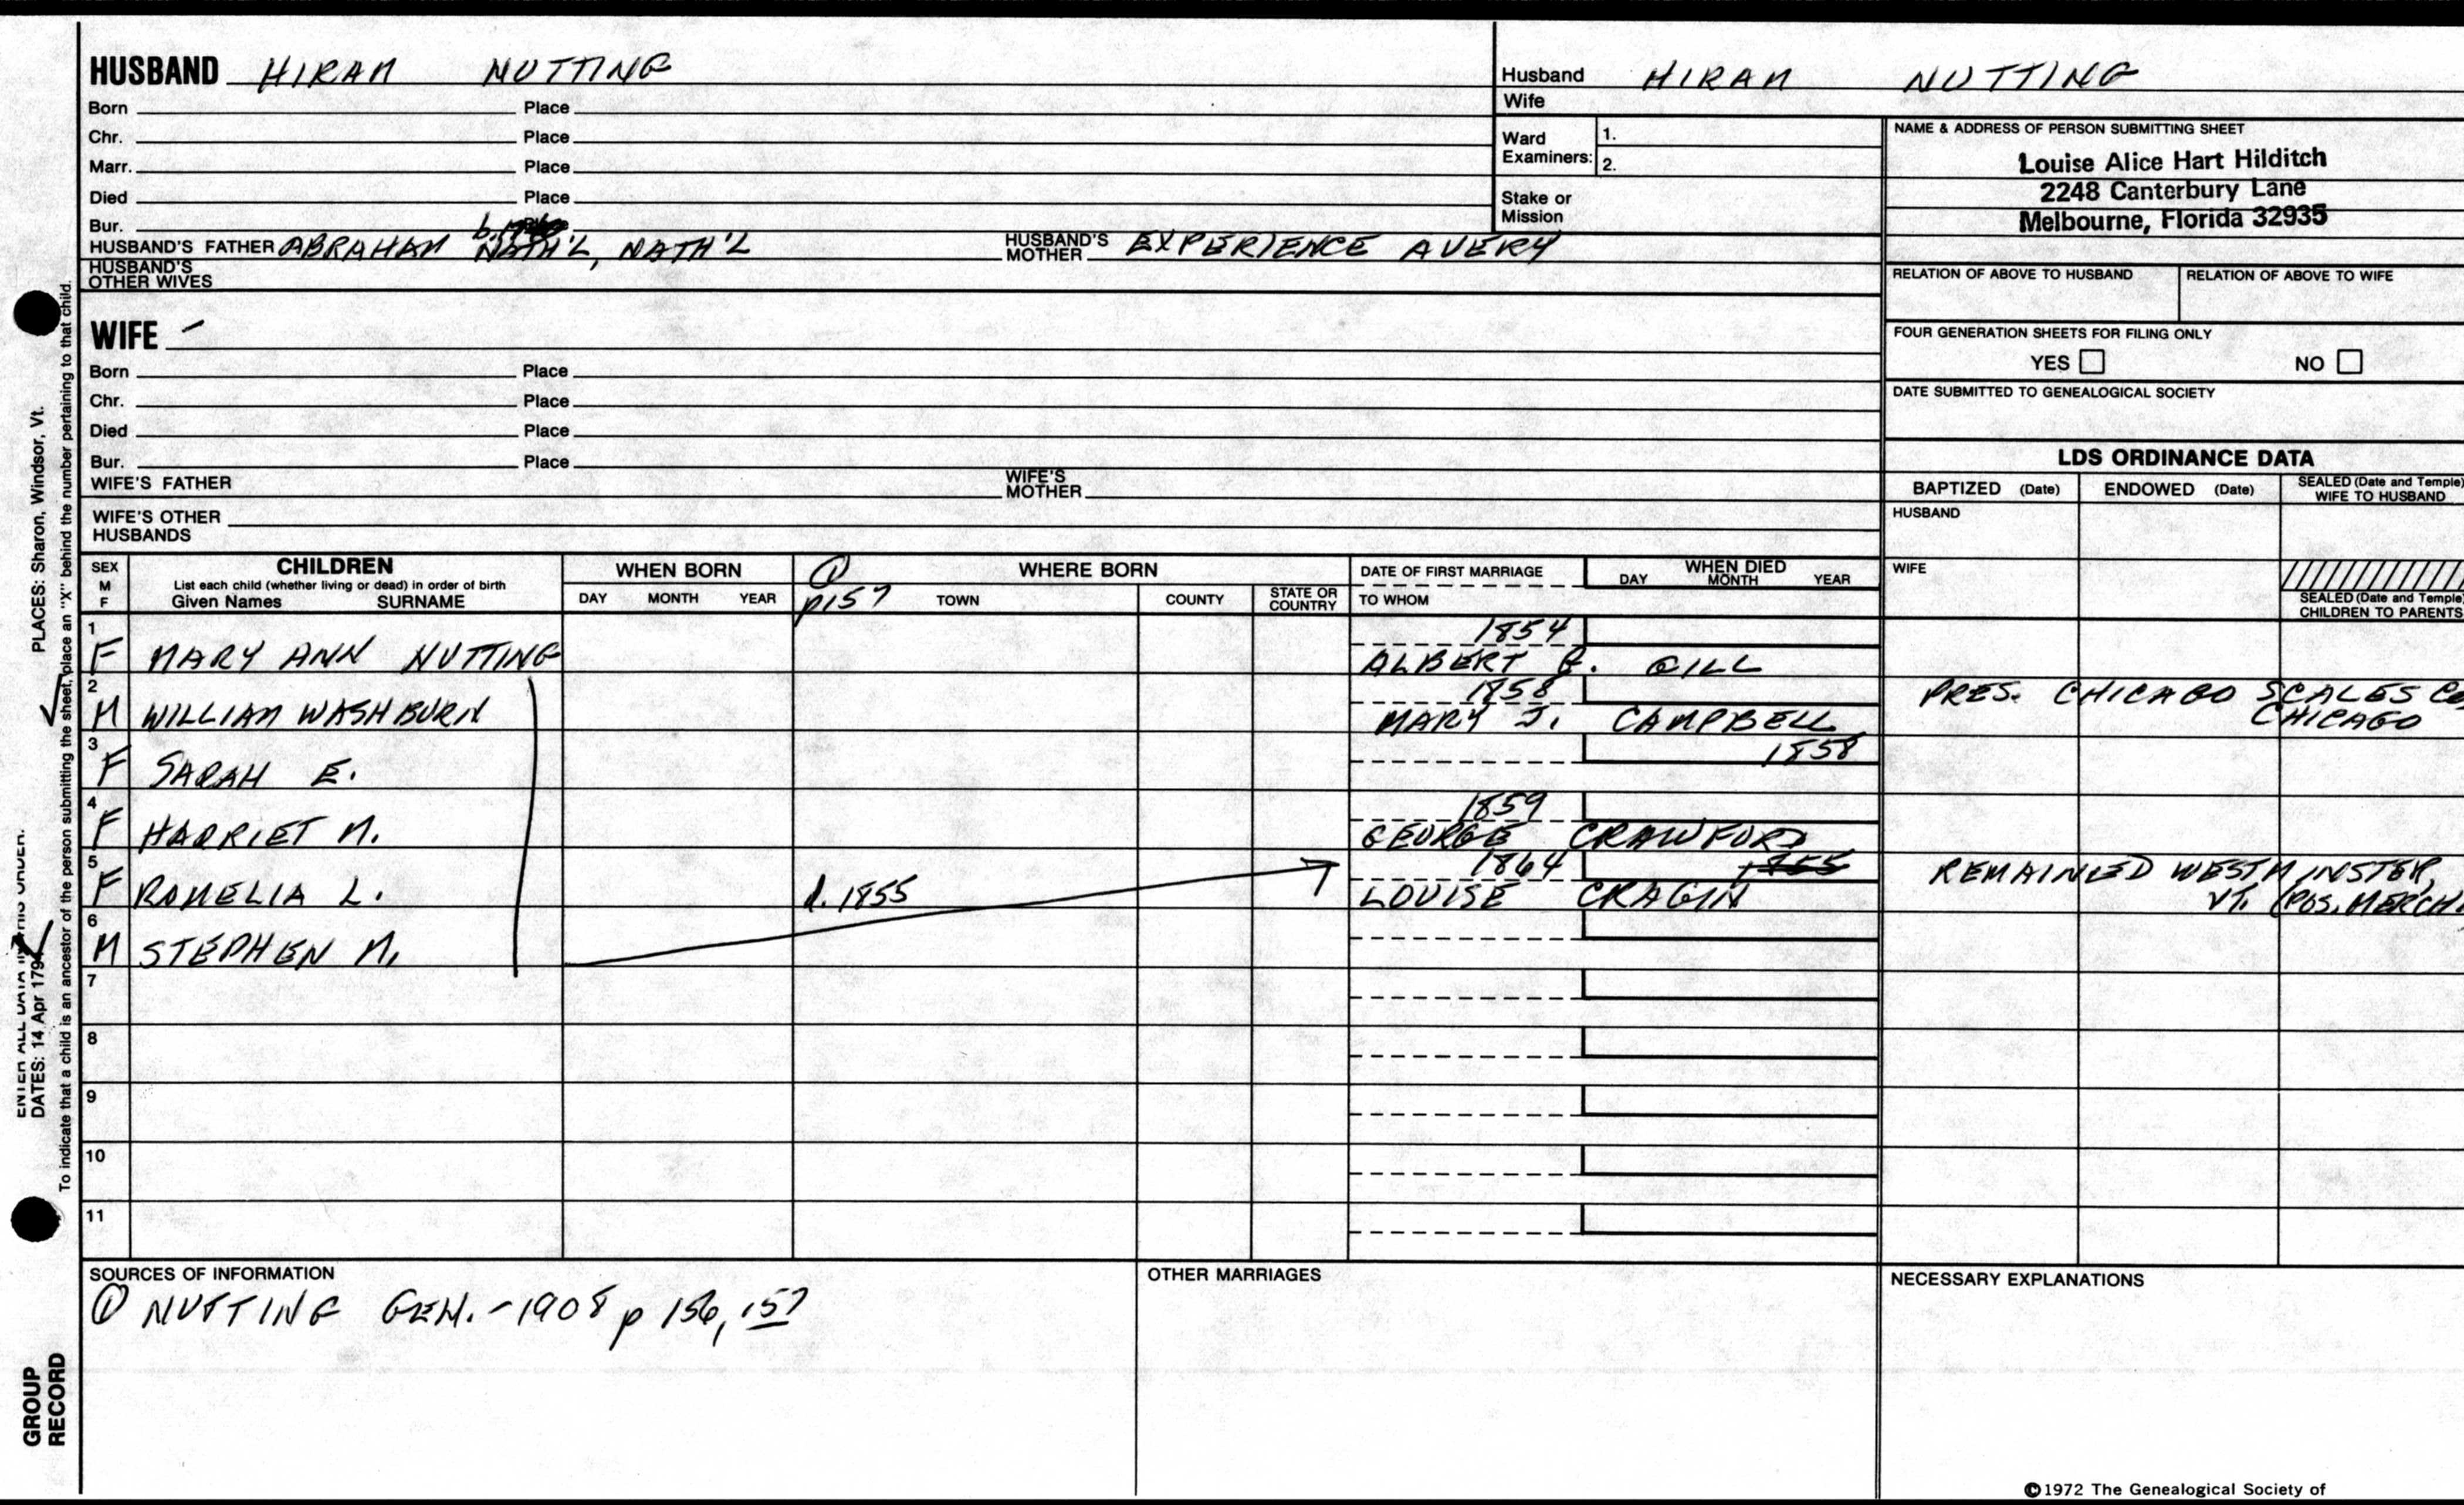 HUSBAND HIRAM NUTTING
Born Place
Chr. Place
Marr. Place
Died Place
Bur. Place
HUSBAND'S FATHER ABRAHAM NATH'L, NATH'L HUSBAND'S MOTHER EXPERIENCE AVERY
HUSBAND'S OTHER WIVES
Husband HIRAM NUTTING
Wife
Ward Examiners: 1.
2.
Stake or Mission
NAME & ADDRESS OF PERSON SUBMITTING SHEET
Louise Alice Hart Hilditch
2248 Canterbury Lane
Melbourne, Florida 32935
RELATION OF ABOVE TO HUSBAND RELATION OF ABOVE TO WIFE
FOUR GENERATION SHEETS FOR FILING ONLY
YES NO
DATE SUBMITTED TO GENEALOGICAL SOCIETY
WIFE -
Born Place
Chr. Place
Died Place
Bur. Place
WIFE'S FATHER WIFE'S MOTHER
WIFE'S OTHER HUSBANDS
LDS ORDINANCE DATA
BAPTIZED (Date) ENDOWED (Date) SEALED (Date and Temple) WIFE TO HUSBAND
HUSBAND
WIFE
SEALED (Date and Temple) CHILDREN TO PARENTS
SEX M F
CHILDREN
List each child (whether living or dead) in order of birth
Given Names SURNAME
WHEN BORN
DAY MONTH YEAR
① p157
WHERE BORN
TOWN COUNTY STATE OR COUNTRY
DATE OF FIRST MARRIAGE
TO WHOM
WHEN DIED
DAY MONTH YEAR
1 F MARY ANN NUTTING 1854
ALBERT GILL
2 M WILLIAM WASHBURN 1858
MARY J. CAMPBELL
PRES. CHICAGO SCALES Co,
CHICAGO
3 F SARAH E. 1858
4 F HARRIET M. 1859
GEORGE CRAWFORD
5 F ROMELIA L. d. 1855 1864 1855
LOUISE CRAGIN
REMAINED WESTMINSTER,
VT. (POS. MERCH.
6 M STEPHEN M.
7
8
9
10
11
SOURCES OF INFORMATION
① NUTTING GEN. - 1908 p 156, 157
OTHER MARRIAGES
NECESSARY EXPLANATIONS
©1972 The Genealogical Society of
PLACES: Sharon, Windsor, Vt.
ENTER ALL DATA IN THIS ORDER:
DATES: 14 Apr 179
To indicate that a child is an ancestor of the person submitting the sheet, place an "X" behind the number pertaining to that child.
GROUP
RECORD